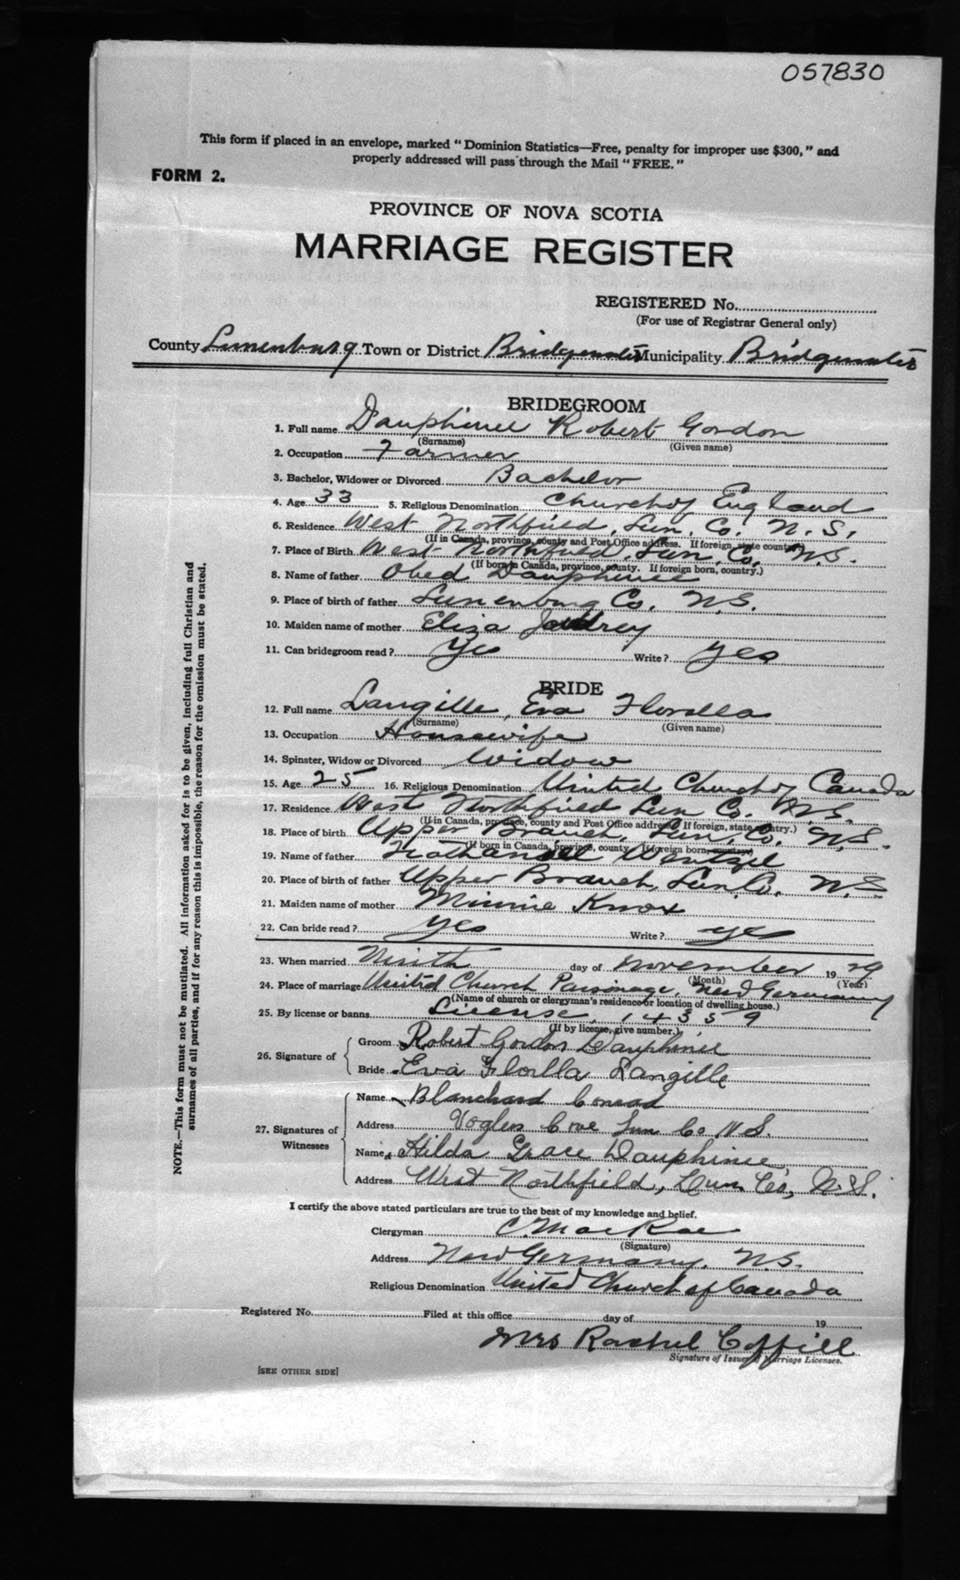 057830
This form if placed in an envelope, marked "Dominion Statistics—Free, penalty for improper use $300," and
properly addressed will pass through the Mail "FREE."
FORM 2.
PROVINCE OF NOVA SCOTIA
MARRIAGE REGISTER
REGISTERED No.
(For use of Registrar General only)
County Lunenburg Town or District Bridgewater Municipality Bridgewater
BRIDEGROOM
1. Full name Dauphinee Robert Gordon
(Surname) (Given name)
2. Occupation Farmer
3. Bachelor, Widower or Divorced Bachelor
4. Age 33 5. Religious Denomination Church of England
6. Residence West Northfield, Lun. Co. N.S.
(If in Canada, province, county and Post Office address. If foreign, state country.)
7. Place of Birth West Northfield, Lun. Co. N.S.
(If born in Canada, province, county. If foreign born, country.)
8. Name of father Obed Dauphinee
9. Place of birth of father Lunenburg Co. N.S.
10. Maiden name of mother Eliza
11. Can bridegroom read? Yes Write? Yes
BRIDE
12. Full name Langille, Eva Florella
(Surname) (Given name)
13. Occupation Housewife
14. Spinster, Widow or Divorced Widow
15. Age 25 16. Religious Denomination United Church of Canada
17. Residence West Northfield Lun. Co. N.S.
(If in Canada, province, county and Post Office address. If foreign, state country.)
18. Place of birth Upper Branch, Lun. Co. N.S.
(If born in Canada, province, county. If foreign born, country)
19. Name of father Nathaniel Wentzel
20. Place of birth of father Upper Branch, Lun. Co. N.S
21. Maiden name of mother Minnie Knox
22. Can bride read? Yes Write? yes
23. When married Ninth day of November 1929
(Month) (Year)
24. Place of marriage United Church Parsonage, New Germany
(Name of church or clergyman's residence or location of dwelling house.)
25. By license or banns License, 14359
(If by license, give number.)
26. Signature of Groom Robert Gordon Dauphinee
Bride Eva Florilla Langille
27. Signatures of Witnesses
Name Blanchard Conrad
Address Voglers Cove Lun Co N.S.
Name Hilda Grace Dauphinee
Address West Northfield, Lun. Co, N.S.
I certify the above stated particulars are true to the best of my knowledge and belief.
Clergyman C. MacRae
(Signature)
Address New Germany, N.S.
Religious Denomination United Church of Canada
Registered No. Filed at this office day of 19
Mrs Rachel Coffill
Signature of Issuer of Marriage Licenses.
[SEE OTHER SIDE]
NOTE.—This form must not be mutilated. All information asked for is to be given, including full Christian and
surnames of all parties, and if for any reason this is impossible, the reason for the omission must be stated.